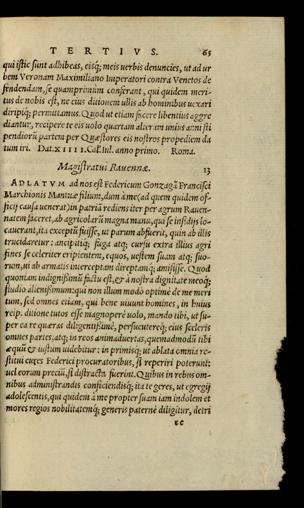 TERTIVS. 65
qui istic sunt adhibeas, eisq; meis uerbis denuncies, ut ad ur
bem Veronam Maximiliano Imperatori contra Venetos de
fendendam, se quamprimum conferant, qui quidem meri-
tus de nobis est, ne eius ditionem ullis ab hominibus uexari
diripiq; permittamus. Quod ut etiam facere libentius aggre
diantur, recipere te eis uolo quartam alteram unius anni sti
pendiorũ partem per Quæstores eis nostros propediem da
tum iri. Dat. XIIII. Cal. Iul. anno primo. Roma.
Magistratui Rauennæ. 13
ADLATVM ad nos est Federicum Gonzagã Francisci
Marchionis Mantuæ filium, dum à me (ad quem quidem of-
ficij causa uenerat) in patriã rediens iter per agrum Rauen-
natem faceret, ab agricolarũ magna manu, qui se insidijs lo-
cauerant, ita exceptũ fuisse, ut parum abfuerit, quin ab illis
trucidaretur: ancipitiq; fuga atq; cursu extra illius agri
fines se celeriter eripientem, equos, uestem suam atq; suo-
rum, ui ab armatis interceptam direptamq; amisisse. Quod
quoniam indignissimũ factu est, & à nostra dignitate meoq;
studio alienissimum: qui non illum modò optimè de me meri
tum, sed omnes etiam, qui bene uiuunt homines, in huius
reip. ditione tutos esse magnopere uolo, mando tibi, ut su-
per ea re quæras diligentissimè, persecutereq; eius sceleris
omnes partes, atq; in reos animaduertas, quemadmodũ tibi
æquũ & iustum uidebitur: in primisq; ut ablata omnia re-
stitui cures Federici procuratoribus, si reperiri poterunt:
uel eorum preciũ, si distracta fuerint. Quibus in rebus om-
nibus administrandis conficiendisq; ita te geres, ut egregij
adolescentis, qui quidem à me propter suam iam indolem et
mores regios nobilitatemq; generis paternè diligitur, detri